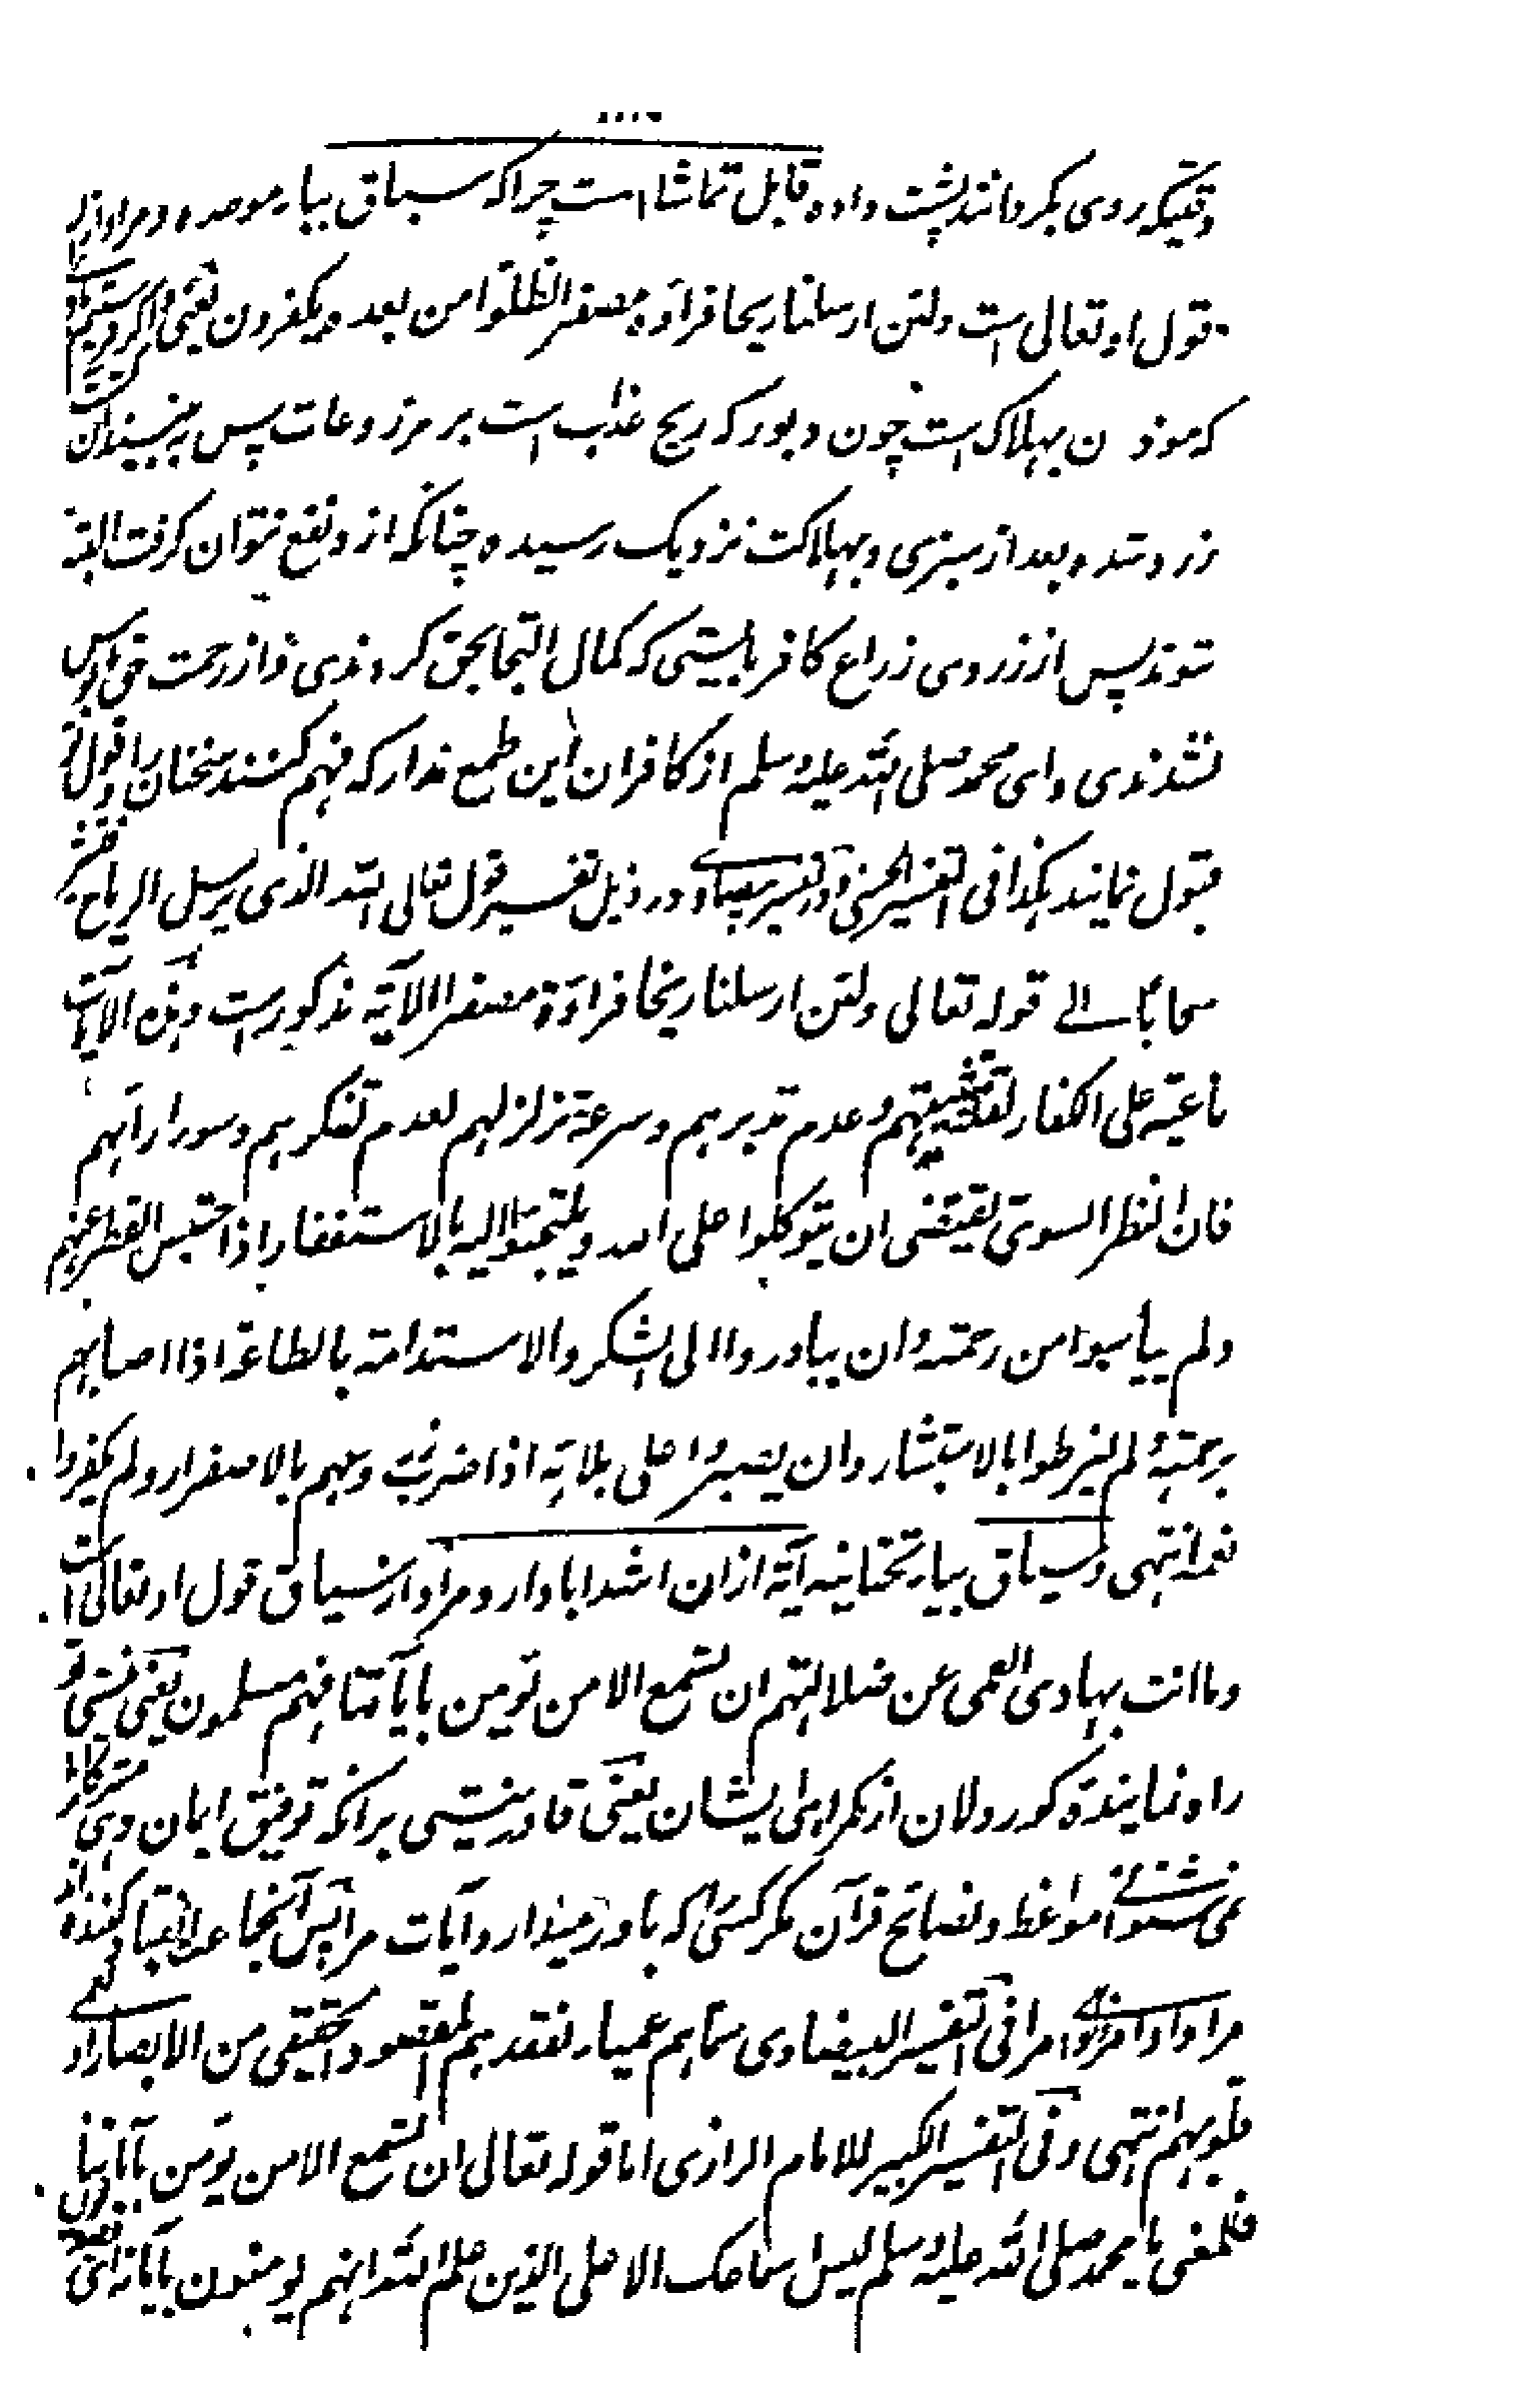 وقتیکه روی بگردانند پشت داده قابل تماشا است چراکه سباق ببار موحده و مراد از
قول او تعالی است ولئن ارسلنا ریحا فراوه مصفرا لظلوا من بعده یکفرون یعنی واگر
که موذن بهلاک است چون دبور که ریح عذاب است بر مزروعات پس به بینند آن
زرد شده بعد از سبزی و بهلاکت نزدیک رسیده چنانکه ازو نفع نتوان گرفت البته
شوند پس از زردی زراع کافر بایستی که کمال التجا بحق کردندی و از رحمت حق مایوس
نشدندی و ای محمد صلی الله علیه وسلم از کافران این طمع مدار که فهم کنند سخنان
قبول نمایند هکذا فی التفسیر الحسینی و در تفسیر بیضاوی در ذیل تفسیر قول تعالی الله الذی یرسل الریاح
سحابا الی قوله تعالی ولئن ارسلنا ریحا فراوه مصفرا الآیة مذکور است وهذه الآیات
ناعیة علی الکفار لقلة تثبتهم وعدم تدبرهم وسرعة تزلزلهم لعدم تفکرهم وسوء رأیهم
فان النظر السوی یقتضی ان یتوکلوا علی الله ویلتجئوا الیه بالاستغفار اذا احتبس القطر عنهم
ولم ییأسوا من رحمته وان یبادروا الی الشکر والاستدامة بالطاعة اذا اصابهم
برحمته ولم یفرطوا بالاستبشار وان یصبروا علی بلائه اذا ضرب زروعهم بالاصفرار ولم یکفروا
نعمه انتهی و سیاق بیار تحتانیه آیة ازان اشد ابا دارد و مراد از سیاق قول او تعالی است
وما انت بهادی العمی عن ضلالتهم ان تسمع الا من یؤمن بآیاتنا فهم مسلمون یعنی نیستی تو
راه نمایندهٔ کور دلان از گمراهی ایشان یعنی قادر نیستی برانکه توفیق ایمان دهی
نمی شنوانی مواعظ و نصائح قرآن مگر کسی را که باور میدارد آیات مرا پس آنجماعه
مراد اوامر مرا فی التفسیر البیضاوی سماهم عمیا لفقدهم المقصود الحقیقی من الابصار او
قلوبهم انتهی وفی التفسیر الکبیر للامام الرازی اما قوله تعالی ان تسمع الا من یؤمن بآیاتنا
فالمعنی یا محمد صلی الله علیه وسلم لیس اسماعک الا علی الذین علم الله انهم یؤمنون بآیاته ای